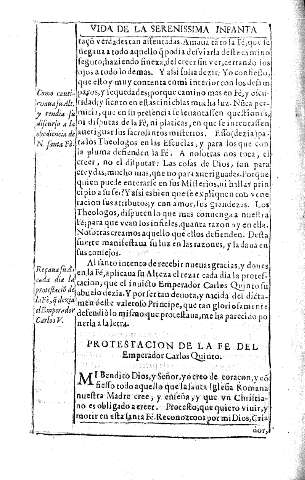 VIDA DE LA SERENISSIMA INFANTA
tazò verdades tan assentadas. Amaua tãto la Fè, que se
negaua a todo aquello q̃ podia desviarla deste camino
seguro; haziendo fineza del creer sin ver, cerrando los
ojos a todo lo demas. Y assi solia dezir. Yo confiesso,
que estoy muy contenta como interior con los desim-
pagos, y sequedades; porque camino mas en Fè, y oscu-
ridad; y siento en estas tinieblas mucha luz. Nũca per-
mitia, que en su presencia se leuantassen questiones,
ni disputas de la Fè, ni platicas, en que se intentassen
aueriguar los sacrosantos misterios. Esso (dezia) pa-
ra los Theologos en las Escuelas, y para los que con
la pluma defienden la Fè. A nosotras nos toca, el
creer, no el disputar: Las cosas de Dios, son para
creydas, mucho mas, que no para aueriguadas. Porque
quien puede entenderle en sus Misterios, ni hallar prin
cipio a su ser? Y assi es bien que se expliquen con vene-
racion sus atributos; y con amor, sus grandezas. Los
Theologos, disputen lo que mas conuenga a nuestra
Fè; para que vean los infieles, quanta razon ay en ella.
Nosotras creamos aquello que ellos defienden. Desta
suerte manifestaua su luz en las razones, y la daua en
sus consejos.
Como cauti-
vaua su Alt.
y rendia su
discurso a la
obediencia de
N. santa Fè.
Al santo intento de recebir nueuas gracias, y dones
en la Fè, aplicaua su Alteza el rezar cada dia la protes-
tacion, que el inuicto Emperador Carlos Quinto su
abuelo dezia. Y por ser tan deuota, y nacida del dicta-
men deste valeroso Principe, que tan gloriosamente
defendiò lo mismo que protestaua, me ha parecido po
nerla a la letra.
Rezaua su Al.
cada dia la
protestaciõ de
la Fè, q̃ dezia
el Emperador
Carlos V.
PROTESTACION DE LA FE DEL
Emperador Carlos Quinto.
MI Bendito Dios, y Señor, yo creo de coraçon, y cõ
fiesso todo aquello que la santa Iglesia Romana
nuestra Madre cree, y enseña, y que vn Christia-
no es obligado a creer. Protesto, que quiero viuir, y
morir en esta santa Fè. Reconozco os por mi Dios, Cria
dor,